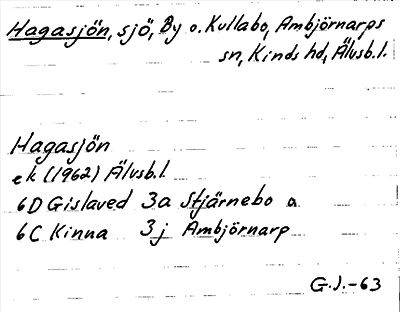 Hagasjön, sjö, By o. Kullabo, Ambjörnarps
sn, Kinds hd, Älvsb.l.
Hagasjön
ek (1962) Älvsb.l
6D Gislaved 3a Stjärnebo a
6C Kinna 3j Ambjörnarp
G.J.-63